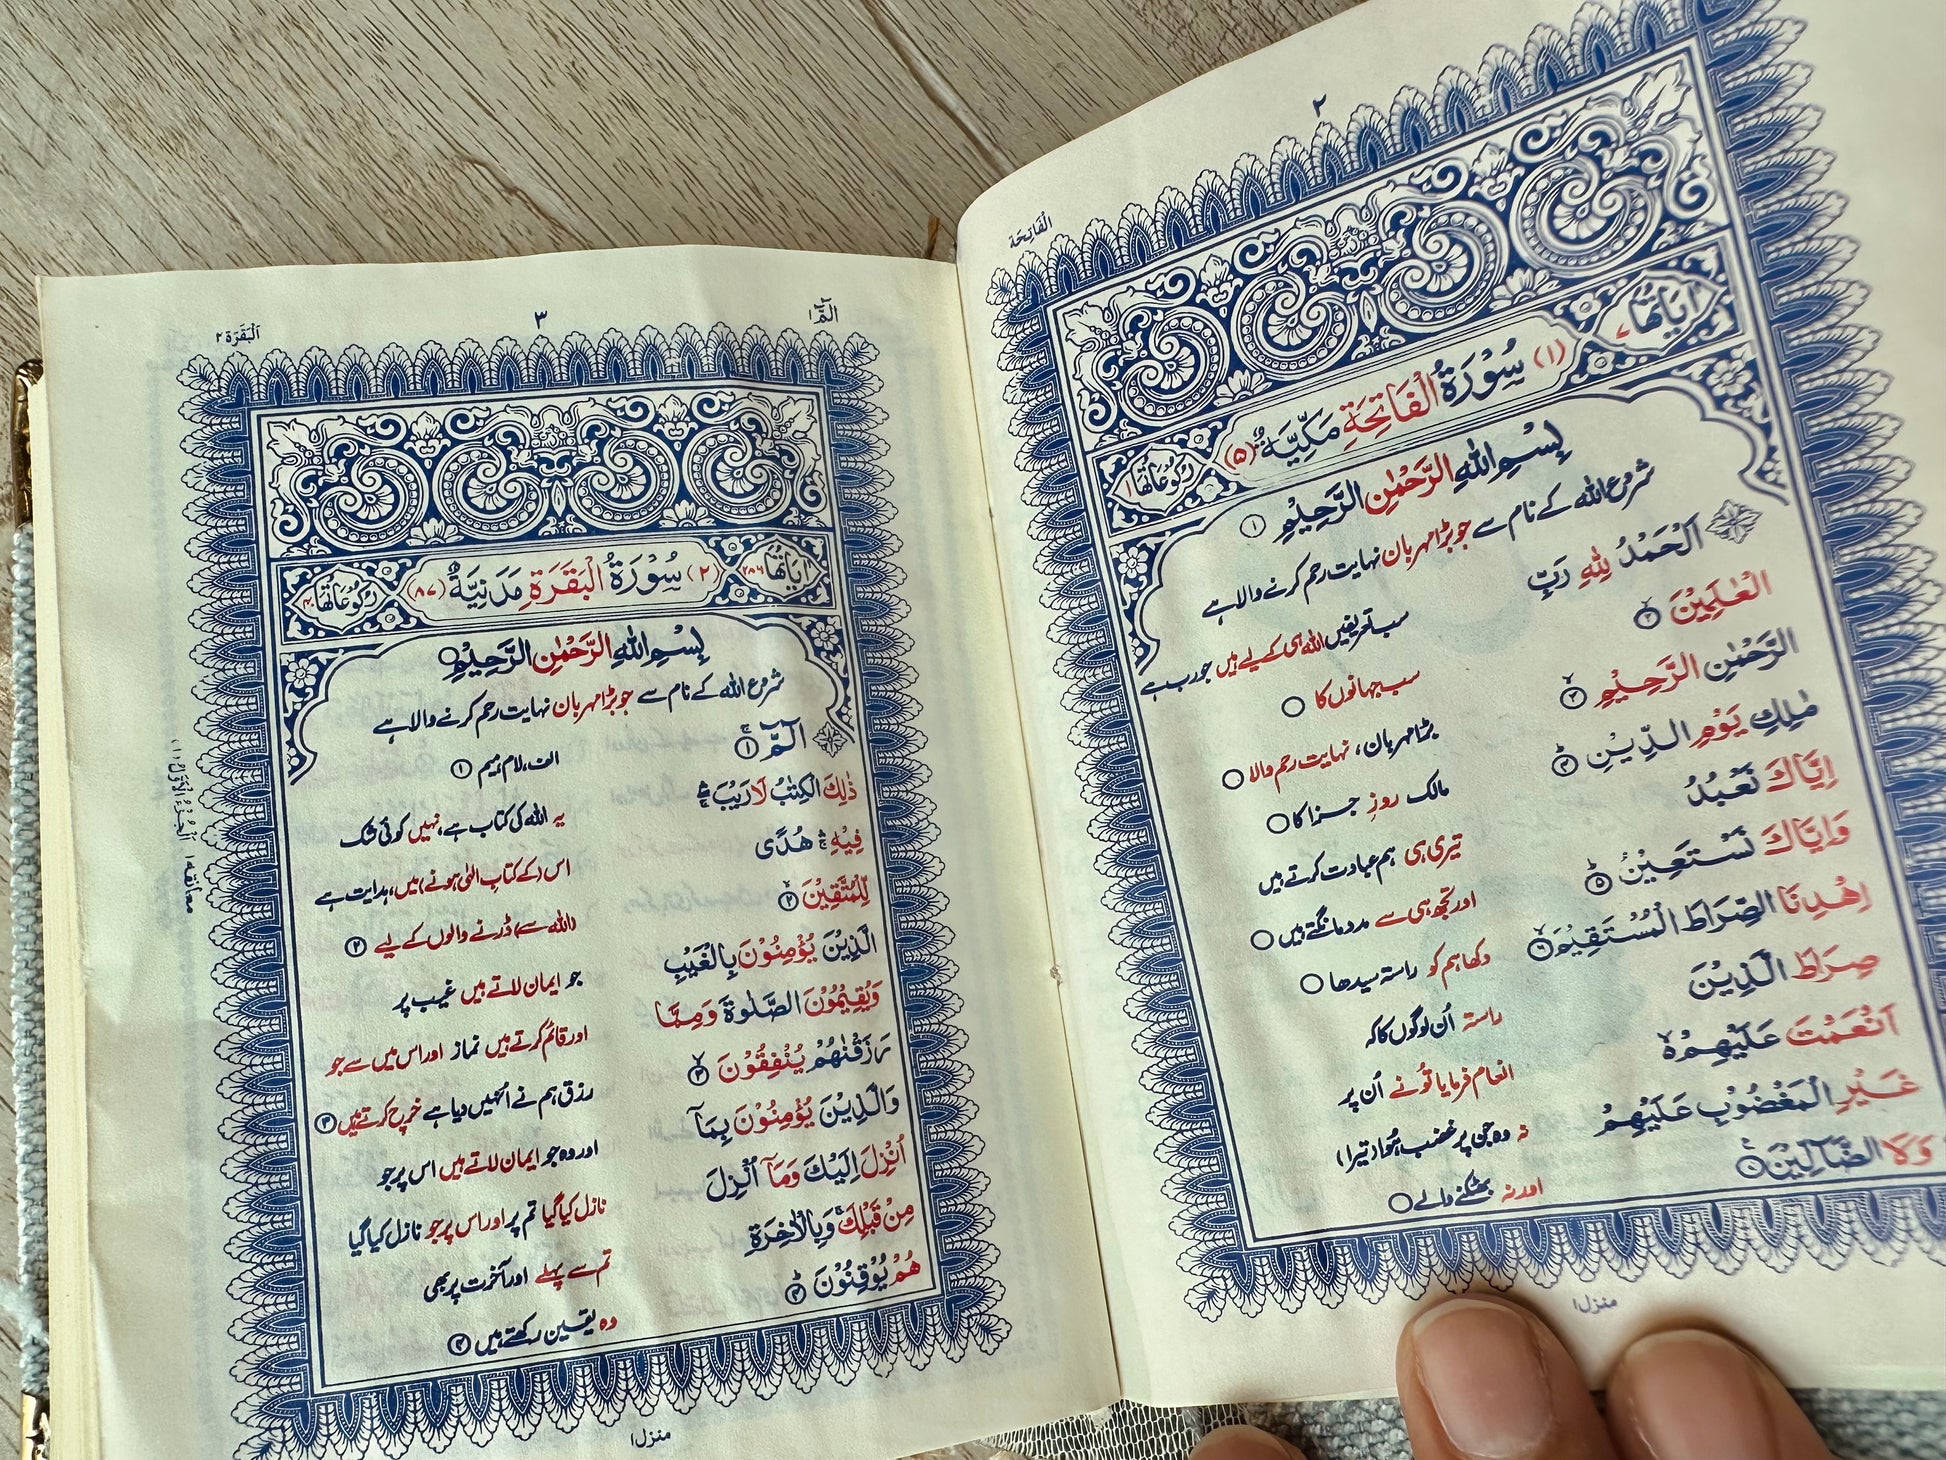 ٢
اَلْفَاتِحَة
اٰيَاتُهَا ٧
(١) سُوْرَةُ الْفَاتِحَةِ مَكِّيَّةٌ (٥)
رُكُوْعَاتُهَا ١
بِسْمِ اللّٰهِ الرَّحْمٰنِ الرَّحِيْمِ ١
شروع اللہ کے نام سے جو بڑا مہربان نہایت رحم کرنے والا ہے
اَلْحَمْدُ لِلّٰهِ رَبِّ
سب تعریفیں اللہ ہی کے لیے ہیں جو رب ہے
الْعٰلَمِيْنَ ٢
سب جہانوں کا
الرَّحْمٰنِ الرَّحِيْمِ ٣
بڑا مہربان، نہایت رحم والا
مٰلِكِ يَوْمِ الدِّيْنِ ٤
مالک روزِ جزا کا
اِيَّاكَ نَعْبُدُ
تیری ہی ہم عبادت کرتے ہیں
وَاِيَّاكَ نَسْتَعِيْنُ ٥
اور تجھ ہی سے مدد مانگتے ہیں
اِهْدِنَا الصِّرَاطَ الْمُسْتَقِيْمَ ٦
دکھا ہم کو راستہ سیدھا
صِرَاطَ الَّذِيْنَ
راستہ اُن لوگوں کا کہ
اَنْعَمْتَ عَلَيْهِمْ
انعام فرمایا تُو نے اُن پر
غَيْرِ الْمَغْضُوْبِ عَلَيْهِمْ
نہ وہ جن پر غضب ہُوا (تیرا)
وَلَا الضَّآلِّيْنَ
اور نہ بھٹکنے والے
منزل ١
الٓمّٓ ١
٣
اَلْبَقَرَة ٢
اٰيَاتُهَا ٢٨٦
(٢) سُوْرَةُ الْبَقَرَةِ مَدَنِيَّةٌ (٨٧)
رُكُوْعَاتُهَا ٤٠
بِسْمِ اللّٰهِ الرَّحْمٰنِ الرَّحِيْمِ
شروع اللہ کے نام سے جو بڑا مہربان نہایت رحم کرنے والا ہے
الٓمّٓ ١
الف، لام، میم ١
ذٰلِكَ الْكِتٰبُ لَا رَيْبَ
یہ اللہ کی کتاب ہے، نہیں کوئی شک
فِيْهِ هُدًى
اس (کے کتابِ الٰہی ہونے) میں، ہدایت ہے
لِّلْمُتَّقِيْنَ ٢
(اللہ سے) ڈرنے والوں کے لیے ٢
الَّذِيْنَ يُؤْمِنُوْنَ بِالْغَيْبِ
جو ایمان لاتے ہیں غیب پر
وَيُقِيْمُوْنَ الصَّلٰوةَ وَمِمَّا
اور قائم کرتے ہیں نماز اور اس میں سے جو
رَزَقْنٰهُمْ يُنْفِقُوْنَ ٣
رزق ہم نے اُنہیں دیا ہے خرچ کرتے ہیں ٣
وَالَّذِيْنَ يُؤْمِنُوْنَ بِمَآ
اور وہ جو ایمان لاتے ہیں اس پر جو
اُنْزِلَ اِلَيْكَ وَمَآ اُنْزِلَ
نازل کیا گیا تم پر اور اس پر جو نازل کیا گیا
مِنْ قَبْلِكَ وَبِالْاٰخِرَةِ
تم سے پہلے اور آخرت پر بھی
هُمْ يُوْقِنُوْنَ ٤
وہ یقین رکھتے ہیں ٤
معانقه ١
اَلْجُزْءُ الْاَوَّلُ (١)
منزل ١